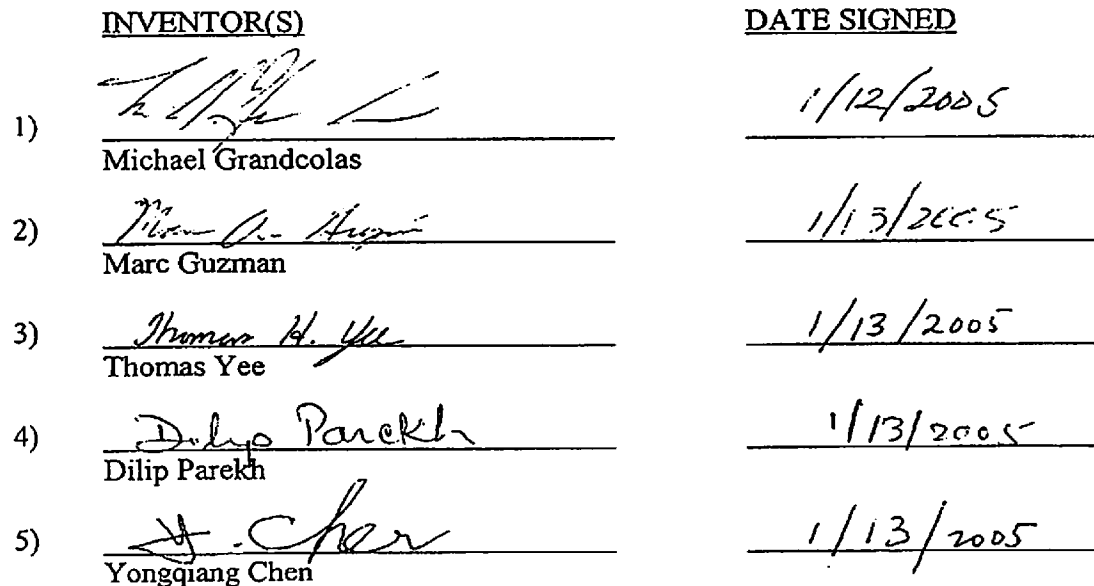 INVENTOR(S) DATE SIGNED
1) 1/12/2005
Michael Grandcolas
2) 1/13/2005
Marc Guzman
3) Thomas H. Yee 1/13/2005
Thomas Yee
4) Dilip Parekh 1/13/2005
Dilip Parekh
5) Y. Chen 1/13/2005
Yongqiang Chen